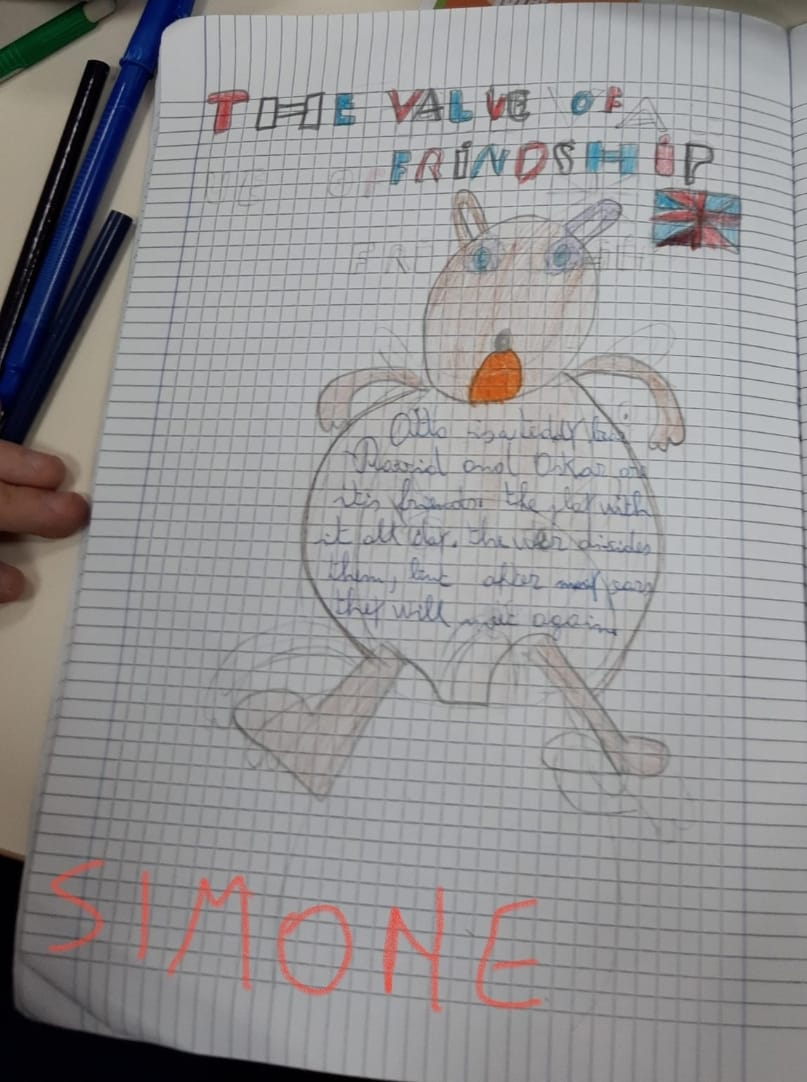 THE VALUE OF
FRINDSHIP
Otto is a teddy bear
David and Oskar are
its friends. the play with
it all day. the war divides
them, but after years
they will again
SIMONE